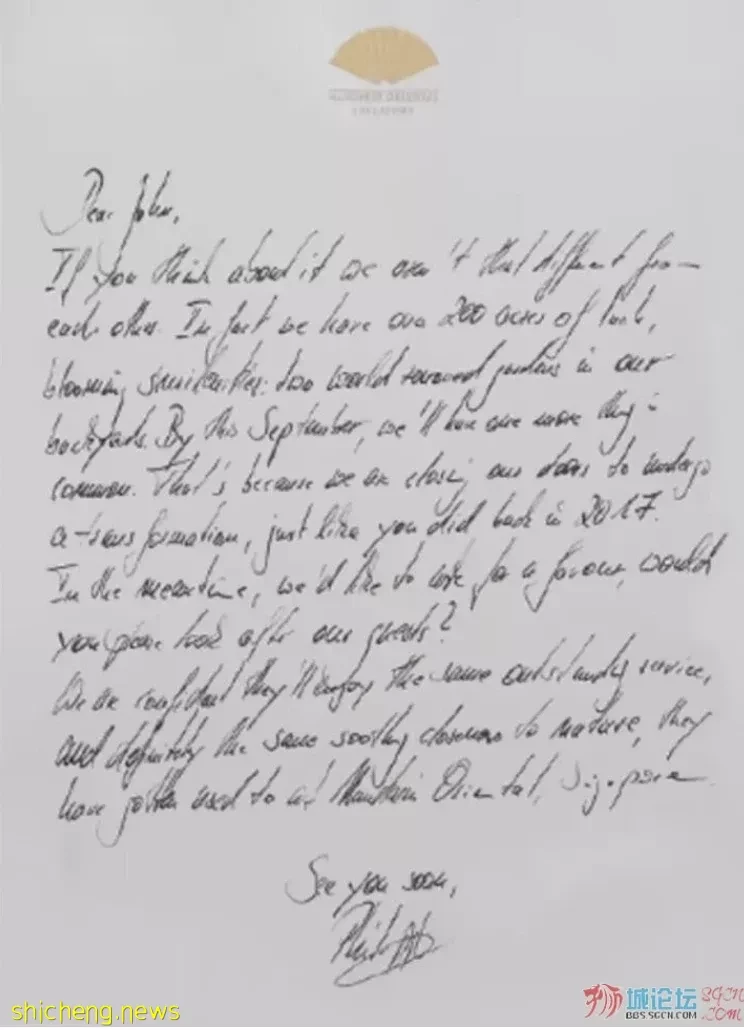 MANDARIN ORIENTAL
SINGAPORE
Dear John,
If you think about it we aren't that different from
each other. In fact we have over 200 acres of lush,
blooming similarities: two world renowned gardens in our
backyards. By this September, we'll have one more thing in
common. That's because we are closing our doors to undergo
a transformation, just like you did back in 2017.
In the meantime, we'd like to ask for a favour, would
you please look after our guests?
We are confident they'll enjoy the same outstanding service,
and definitely the same soothing closeness to nature, they
have gotten used to at Mandarin Oriental, Singapore.
See you soon,
shicheng.news
狮城论坛
BBS.SGCN.COM
SGCN
.COM